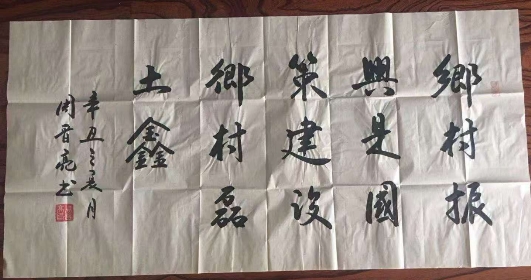 鄉村振
興是國
策建設
鄉村磊
土鑫
辛丑之夏月
周亮书